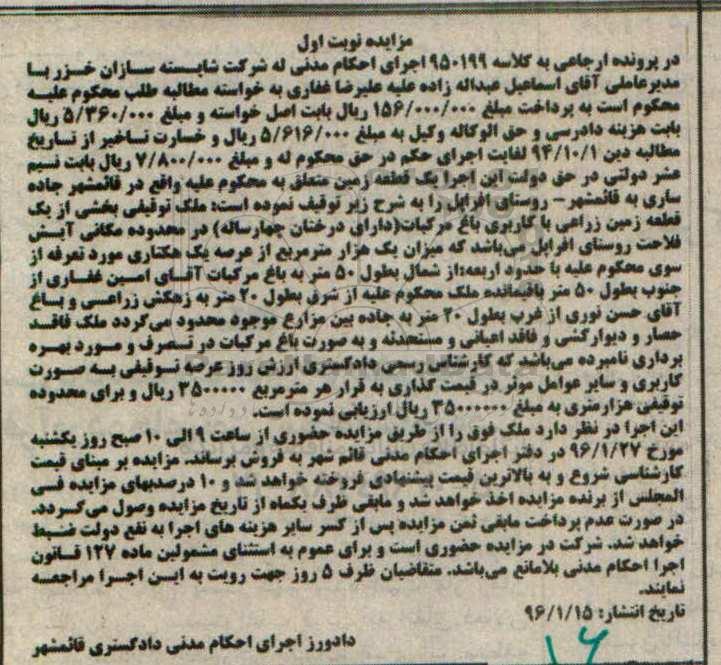 مزایده نوبت اول
در پرونده ارجاعی به کلاسه ۹۵۰۱۹۹ اجرای احکام مدنی له شرکت شایسته سازان خزر با
مدیرعاملی آقای اسماعیل عبداله زاده علیه علیرضا غفاری به خواسته مطالبه طلب محکوم علیه
محکوم است به پرداخت مبلغ ۱۵۶/۰۰۰/۰۰۰ ریال بابت اصل خواسته و مبلغ ۵/۳۶۰/۰۰۰ ریال
بابت هزینه دادرسی و حق الوکاله وکیل به مبلغ ۵/۶۱۶/۰۰۰ ریال و خسارت تاخیر از تاریخ
مطالبه دین ۹۴/۱۰/۱ لغایت اجرای حکم در حق محکوم له و مبلغ ۷/۸۰۰/۰۰۰ ریال بابت نسیم
عشر دولتی در حق دولت این اجرا یک قطعه زمین متعلق به محکوم علیه واقع در قائمشهر جاده
ساری به قائمشهر- روستای افراپل را به شرح زیر توقیف نموده است: ملک توقیفی بخشی از یک
قطعه زمین زراعی با کاربری باغ مرکبات(دارای درختان چهارساله) در محدوده مکانی آیش
فلاحت روستای افراپل می‌باشد که میزان یک هزار مترمربع از عرصه یک هکتاری مورد تعرفه از
سوی محکوم علیه با حدود اربعه:از شمال بطول ۵۰ متر به باغ مرکبات آقای امین غفاری از
جنوب بطول ۵۰ متر باقیمانده ملک محکوم علیه از شرق بطول ۲۰ متر به زهکش زراعی و باغ
آقای حسن نوری از غرب بطول ۲۰ متر به جاده بین مزارع موجود محدود می‌گردد ملک فاقد
حصار و دیوارکشی و فاقد اعیانی و مستحدثه و به صورت باغ مرکبات در تصرف و مورد بهره
برداری نامبرده می‌باشد که کارشناس رسمی دادگستری ارزش روز عرصه توقیفی به صورت
کاربری و سایر عوامل موثر در قیمت گذاری به قرار هر مترمربع ۳۵۰۰۰۰۰ ریال و برای محدوده
توقیفی هزارمتری به مبلغ ۳۵۰۰۰۰۰۰۰ ریال ارزیابی نموده است.
این اجرا در نظر دارد ملک فوق را از طریق مزایده حضوری از ساعت ۹ الی ۱۰ صبح روز یکشنبه
مورخ ۹۶/۱/۲۷ در دفتر اجرای احکام مدنی قائم شهر به فروش برساند. مزایده بر مبنای قیمت
کارشناسی شروع و به بالاترین قیمت پیشنهادی فروخته خواهد شد و ۱۰ درصدبهای مزایده فی
المجلس از برنده مزایده اخذ خواهد شد و مابقی ظرف یکماه از تاریخ مزایده وصول می‌گردد.
در صورت عدم پرداخت مابقی ثمن مزایده پس از کسر سایر هزینه های اجرا به نفع دولت ضبط
خواهد شد. شرکت در مزایده حضوری است و برای عموم به استثنای مشمولین ماده ۱۲۷ قانون
اجرا احکام مدنی بلامانع می‌باشد. متقاضیان ظرف ۵ روز جهت رویت به این اجرا مراجعه
نمایند.
تاریخ انتشار: ۹۶/۱/۱۵
دادورز اجرای احکام مدنی دادگستری قائمشهر
۱۶